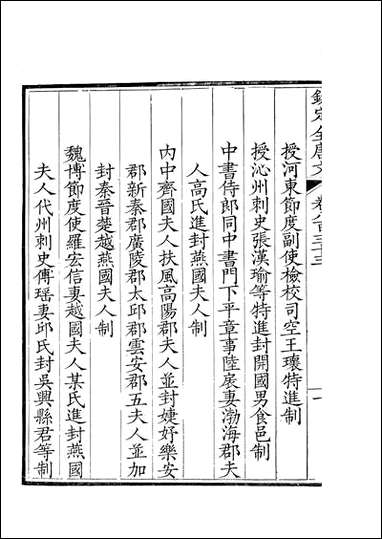 欽定全唐文 卷八百三十三 一
授河東節度副使檢校司空王瓌特進制
授沁州刺史張漢瑜等特進封開國男食邑制
中書侍郎同中書門下平章事陸扆妻渤海郡夫
人高氏進封燕國夫人制
內中齊國夫人扶風高陽郡夫人並封婕妤樂安
郡新秦郡廣陵郡太邱郡雲安郡五夫人並加
封秦晉楚越燕國夫人制
魏博節度使羅宏信妻越國夫人某氏進封燕國
夫人代州刺史傅瑤妻邱氏封吳興縣君等制